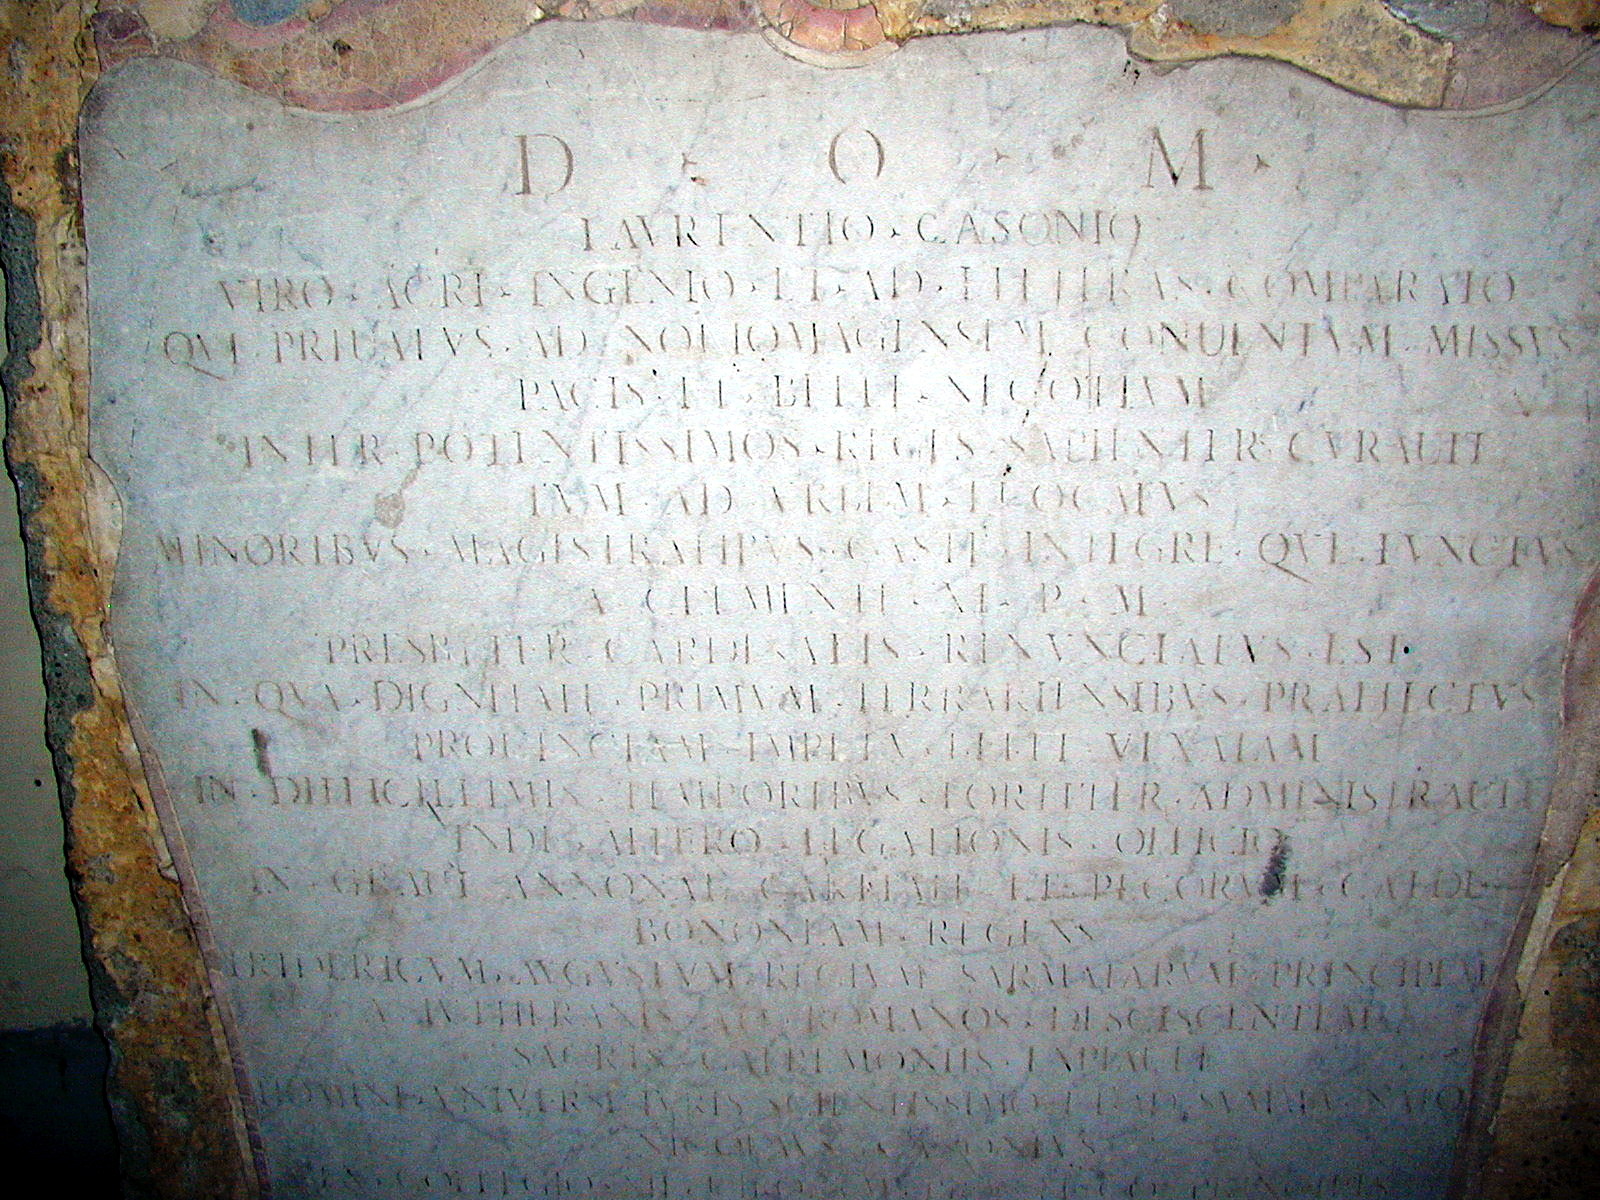 D · O · M ·
LAVRENTIO · CASONIO
VIRO · ACRI · INGENIO · ET · AD · LITTERAS · COMPARATO
QVI · PRIUATVS · AD · NOUIOMAGENSEM · CONUENTVM · MISSVS
PACIS · ET · BELLI · NEGOTIVM
INTER · POTENTISSIMOS · REGES · SAPIENTER · CVRAUIT
TVM · AD · VRBEM · EUOCATVS
MINORIBVS · MAGISTRATIBVS · CASTE · INTEGRE · QVE · FVNCTVS
A · CLEMENTE · XI · P · M ·
PRESBYTER · CARDINALIS · RENVNCIATVS · EST ·
IN · QVA · DIGNITATE · PRIMVM · FERRARIENSIBVS · PRAEFECTVS
PROUINCIAM · IMPETV · BELLI · VEXATAM
IN · DIFFICILLIMIS · TEMPORIBVS · FORTITER · ADMINISTRAUIT
INDE · ALTERO · LEGATIONIS · OFFICIO
IN · GRAUI · ANNONAE · CARITATE · ET · PECORVM · CAEDE
BONONIAM · REGENS
FRIDERICVM · AVGVSTVM · REGIVM · SARMATARVM · PRINCIPEM
A · LVTHERANIS · AD · ROMANOS · DESCISCENTEM
SACRIS · CAEREMONIIS · EXPIAUIT
HOMINI · VNIVERSI · IVRIS · SCIENTISSIMO · ET · AD · SVMMA · NATO
NICOLAVS · CASONIVS
EX · COLLEGIO